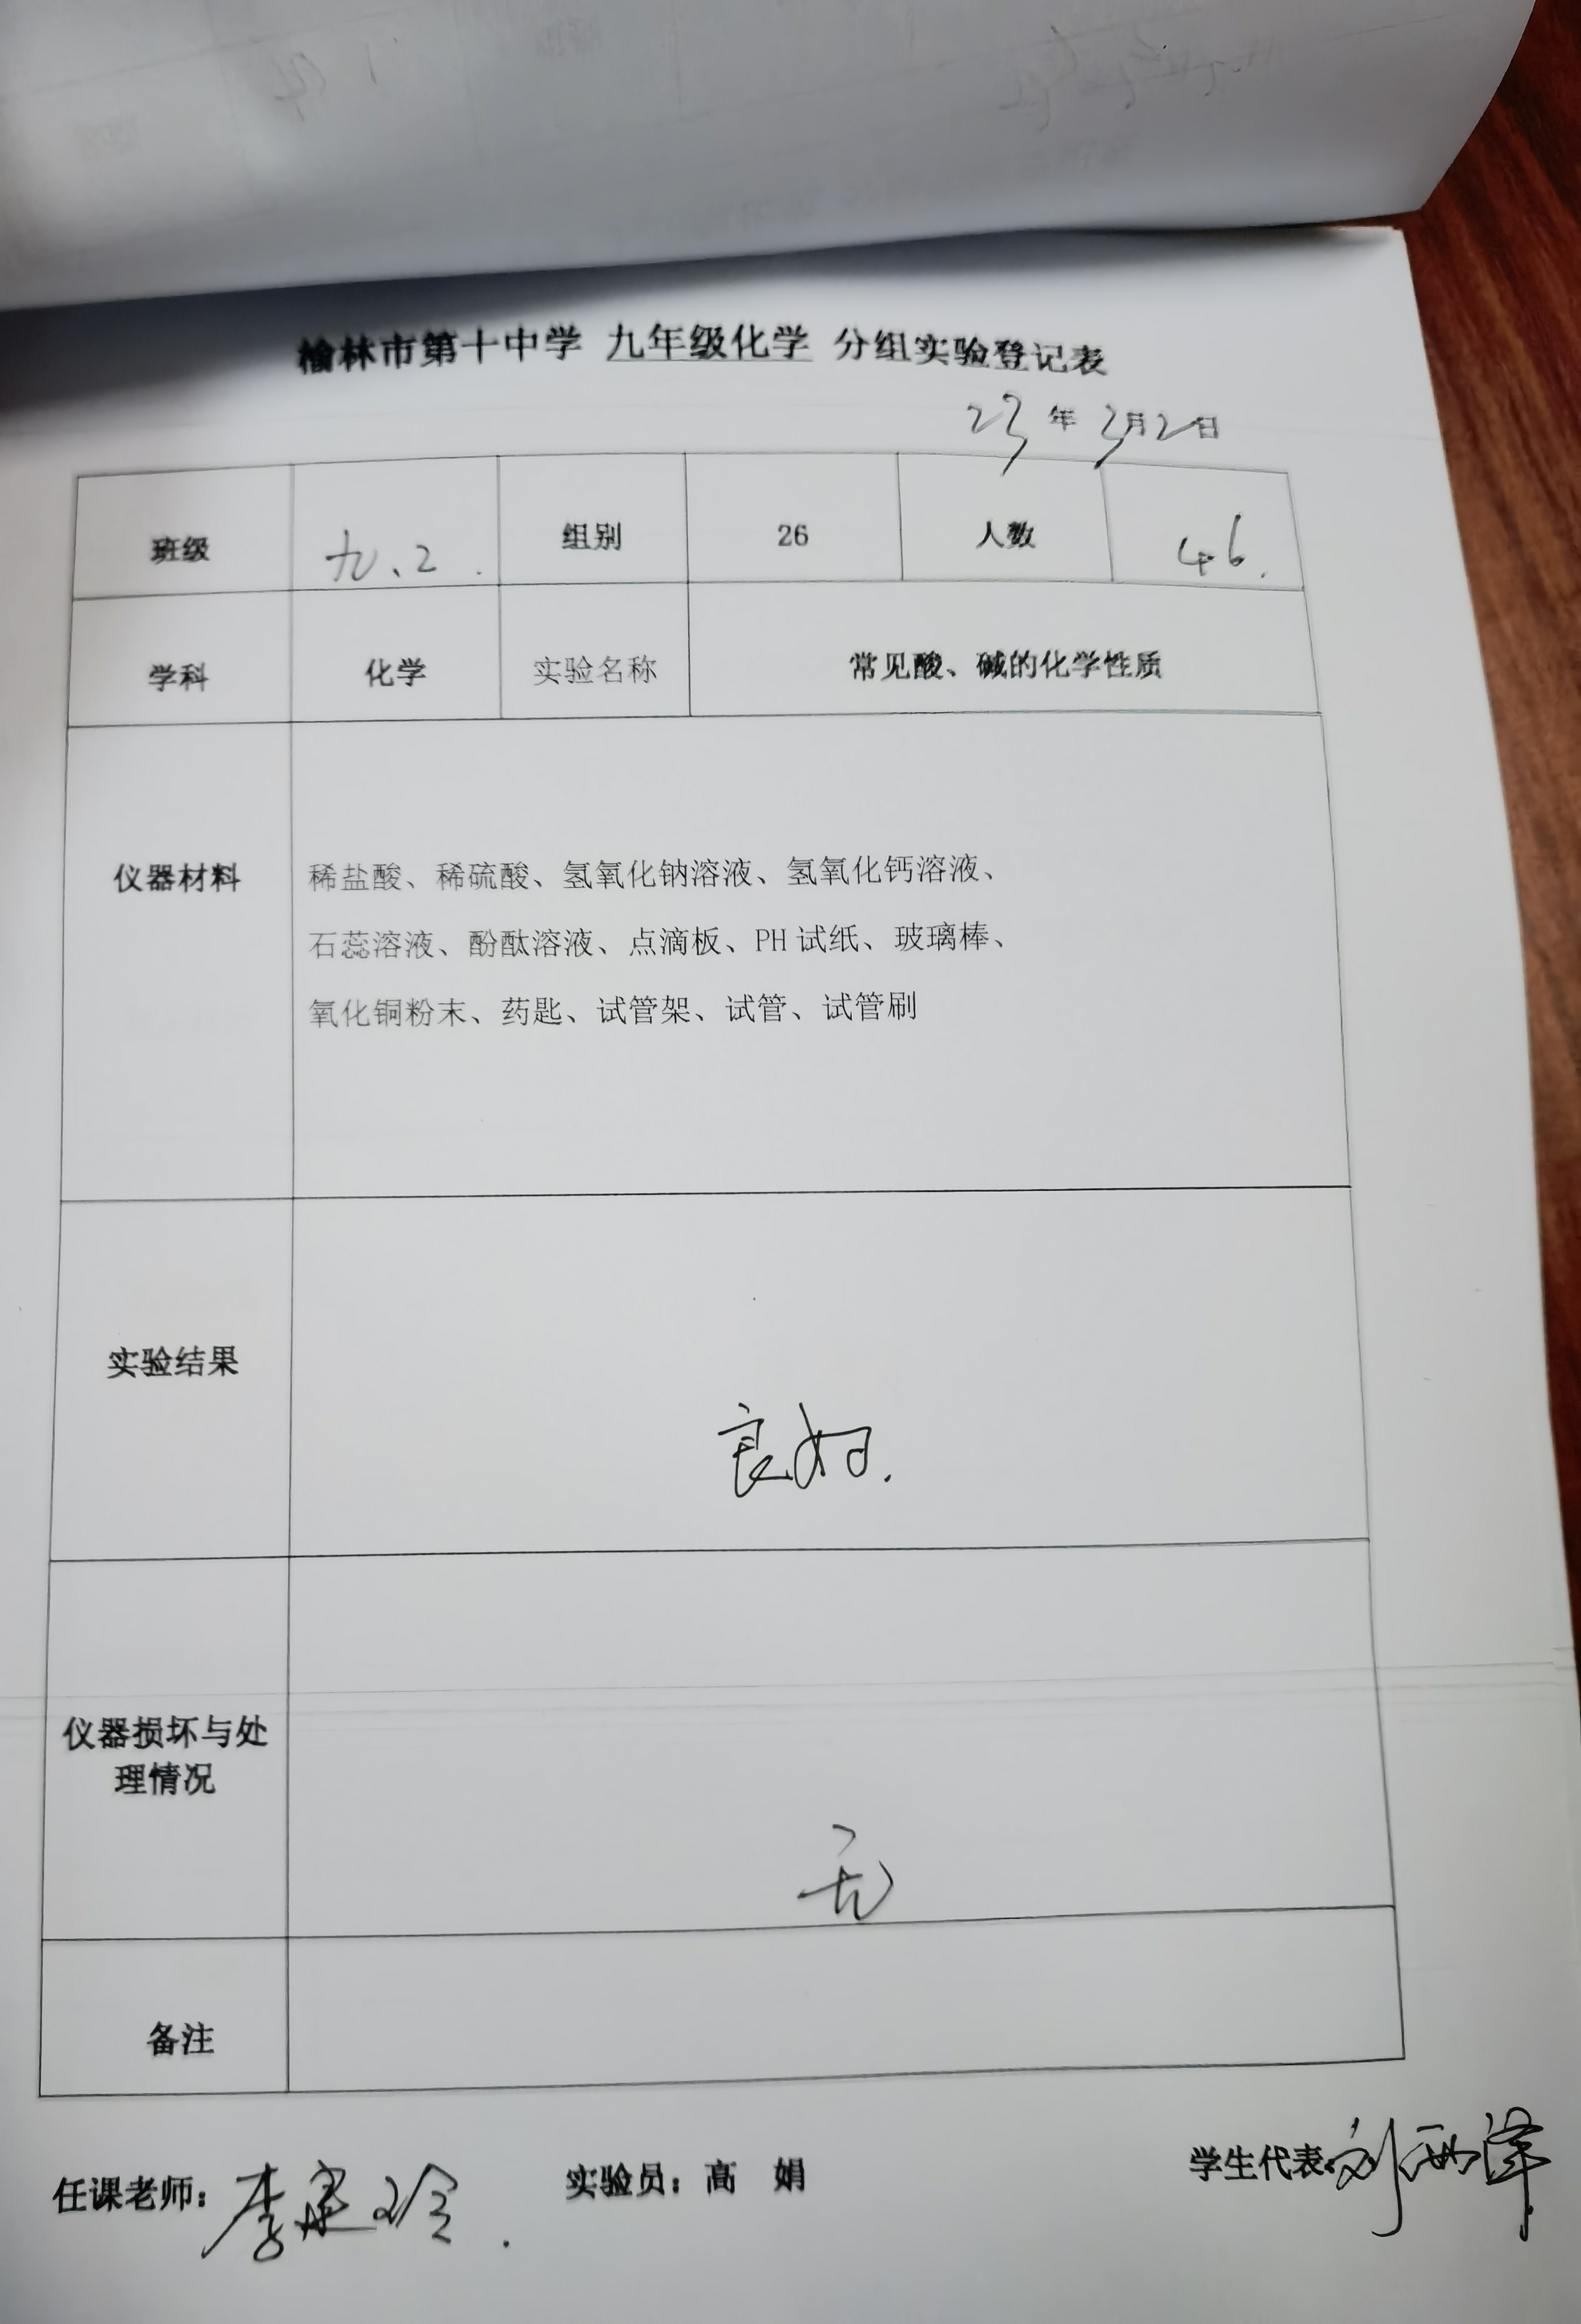 榆林市第十中学 九年级化学 分组实验登记表
23年3月2日
班级 九.2. 组别 26 人数 46.
学科 化学 实验名称 常见酸、碱的化学性质
仪器材料
稀盐酸、稀硫酸、氢氧化钠溶液、氢氧化钙溶液、
石蕊溶液、酚酞溶液、点滴板、PH试纸、玻璃棒、
氧化铜粉末、药匙、试管架、试管、试管刷
实验结果
良好.
仪器损坏与处
理情况
无
备注
任课老师： 实验员：高 娟 学生代表：